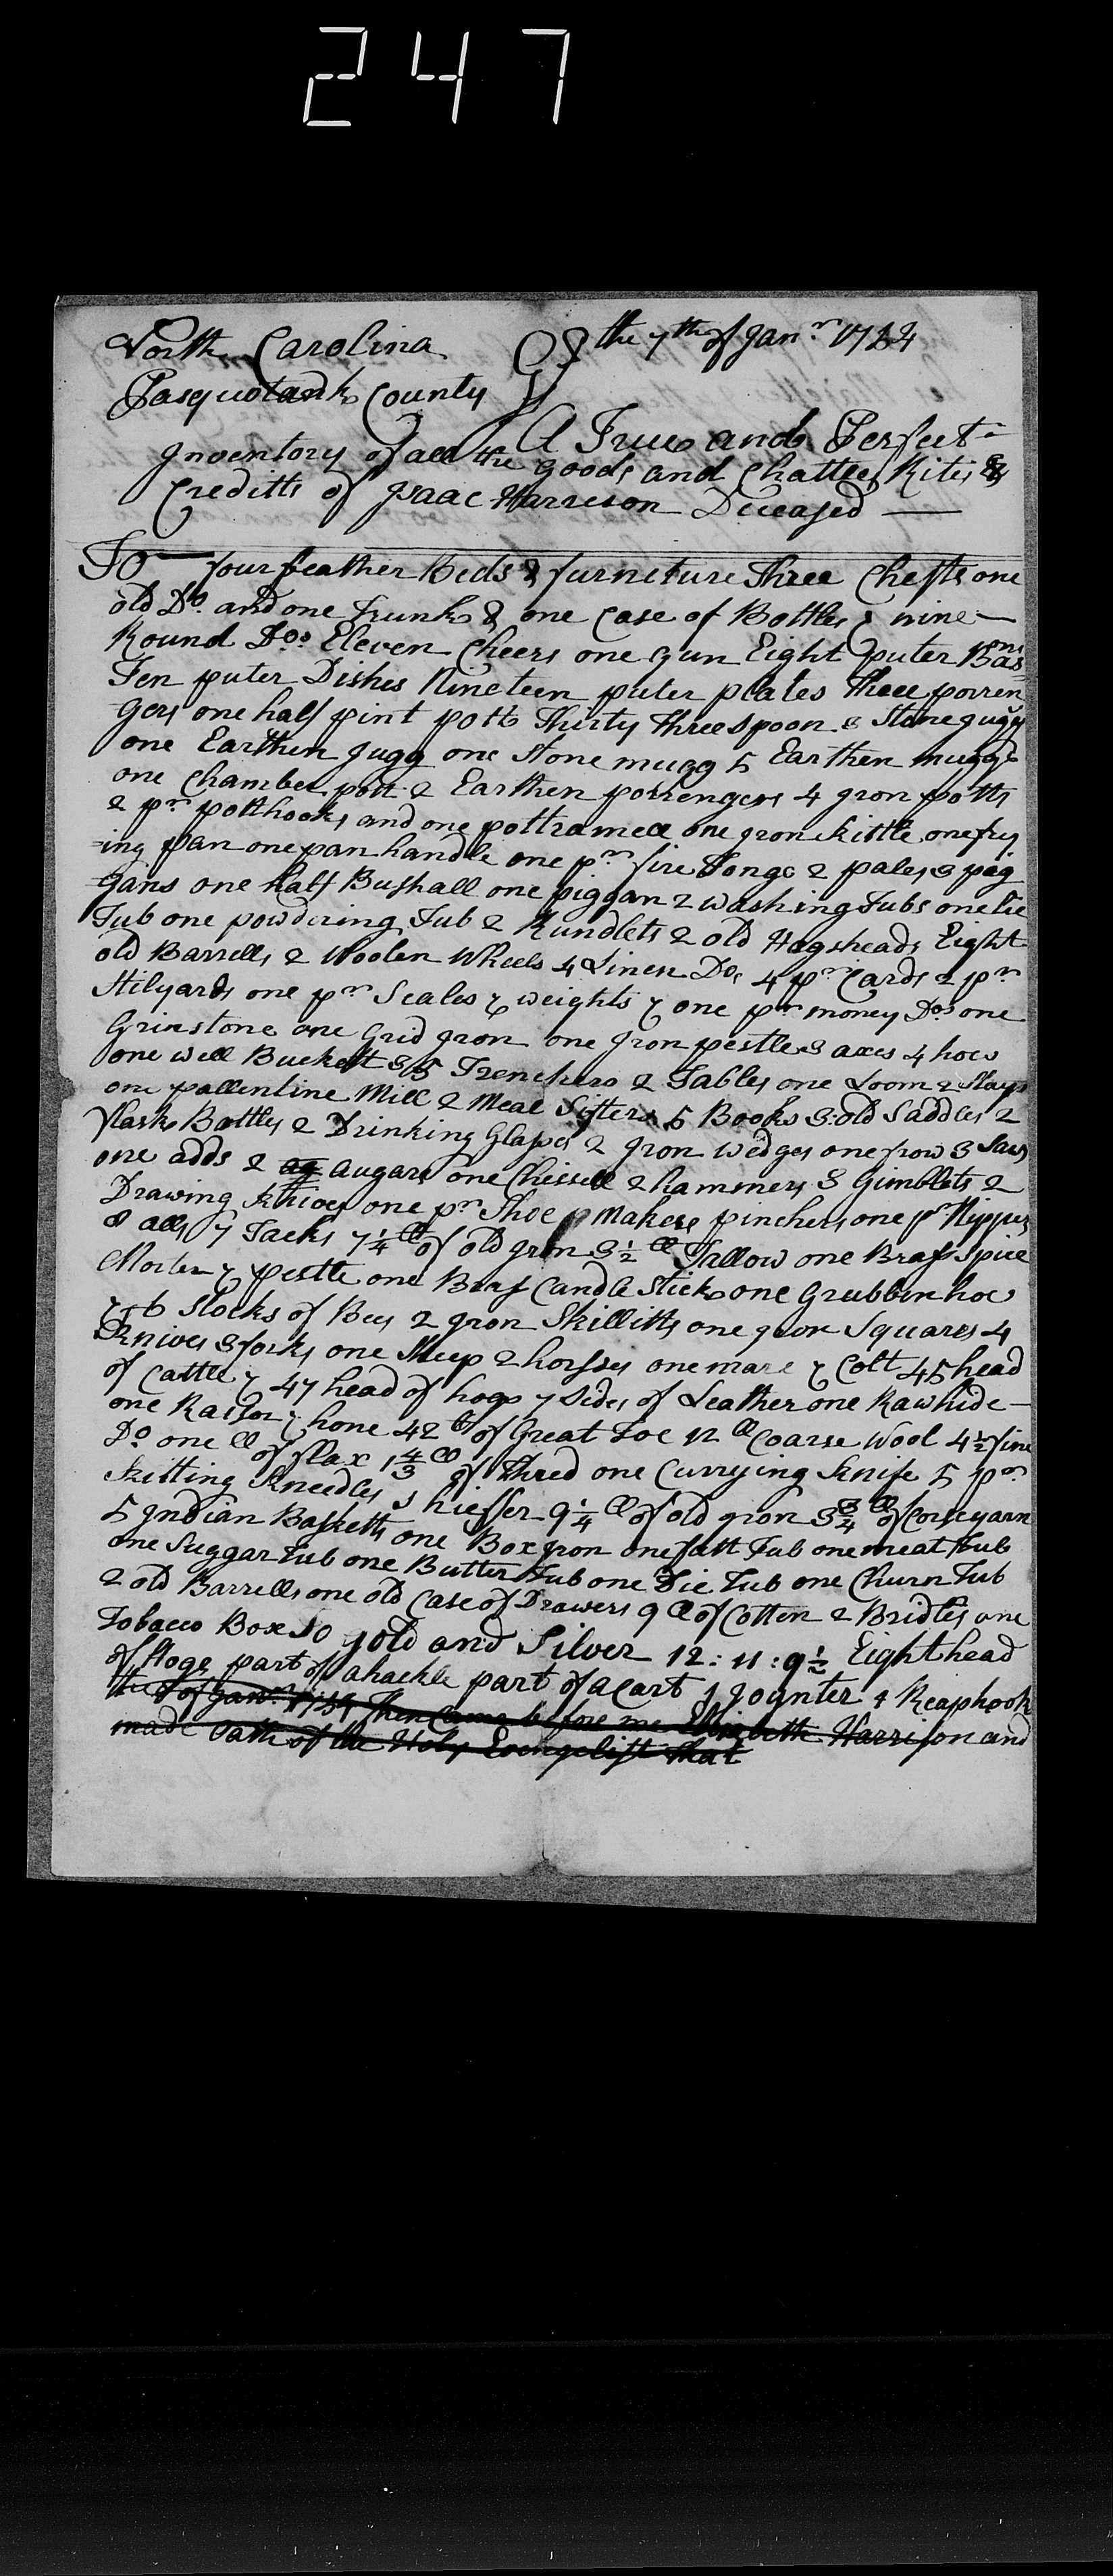 247
North Carolina the 7th of Janr 17
Pasquotank County
A True and Perfect
Inventory of all the goods and Chattles Rites &
Creditts of Isaac Harreson Deceased
To four feather Beds & furneture Three Chests one
old Do. and one Trunk & one Case of Bottles & nine
Round Dos. Eleven Cheers one Gun Eight puter Basons
Ten puter Dishes Nineteen puter plates Three porren
Gers one half pint pott Thirty Three spoon 3 Stone juggs
one Earthen jugg one Stone mugg 5 Earthen muggs
one Chamber pott 2 Earthen porrengers 4 Iron potts
2 pr potthooks and one pottramell one Iron kittle one fry
=ing pan one pan handle one pr fire Tongs 2 pales 3 pig
=gans one half Bushall one piggan 2 washing Tubs one lie
Tub one powdering Tub 2 Rundlets 2 old Hogsheads Eight
old Barrells 2 Woolen Wheels 4 Linen Dos 4 pr Cards 2 pr
Stilyards one pr Scales & weights & one pr money Dos one
Grinstone one Grid Iron one Iron pestle 3 axes 4 hows
one well Buckett 35 Trenchers 2 Tables one Loom 2 Slays
one pallentine Mill 2 Meal Sifters 5 Books 3 old Saddles 2
flask Bottles 2 Drinking Glases 2 Iron wedges one frow 3 Saws
one adds 2 ag augars one Chissell 2 hammers 3 Gimblets 2
Drawing knives one pr Shoe Makers pinchers one pr Nippers
8 alls 7 Tacks 7 1/4 ll of old Iron 3 1/2 ll Tallow one Brass Spice
Morter & pestle one Brass Candle Stick one Grubben hoe
& 6 Stocks of Bees 2 Iron Skillitts one Iron Squares 4
Knives 3 forks one Sheep 2 horsses one mare & Colt 45 head
of Cattle & 47 head of hogs 7 Sides of Leather one Rawhide
one Raisor & hone 42 ll of Great Toe 12 ll Coarse Wool 4 1/2 fine
Do one ll of flax 1 4/3 ll of Thred one Currying knife 5 pr
Kitting Kneedles 1 hieffer 9 1/4 ll of old Iron 3 3/4 ll of Corse yarn
5 Indian Basketts one Box Iron one fatt Tub one meat Tub
one Suggar Tub one Butter Tub one Die Tub one Churn Tub
2 old Barrells one old Case of Drawers 9 ll of Cotten 2 Bridles one
Tobacco Box To gold and Silver 12:11:9 1/2 Eight head
of Hogs part of a hackle part of a Cart 1 Joynter 4 Reaphook
of Janr Then Came before me Elizabeth Harrison and
made Oath of the Holy Evengelist that